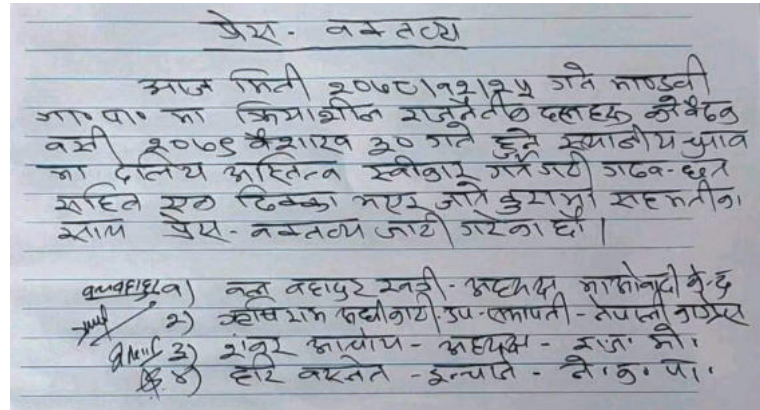 प्रेस - वक्तव्य
आज मिती २०७८।१२।२५ गते माण्डवी
गा॰पा॰ मा क्रियाशील राजनैतीक दलहरु को बैठक
वसी २०७९ बैशाख ३० गते हुने स्थानीय चुनाव
मा दलिय अस्तित्व स्वीकार गर्ने गरी गठव-धन
सहित एक ढिक्का भएर जाने कुरामा सहमतीका
साथ प्रेस - वक्तव्य जारी गरेका छौ ।
१) वल बहादुर खत्री - अध्यक्ष माओवादी के-द्र
२) ऋषिराम अधीकारी उप-सभापती - नेपाली काग्रेस
३) शंकर आचार्य - अध्यक्ष - रा.ज. मो.
४) हरि वस्नेत - इन्चार्ज - ने. क. पा.